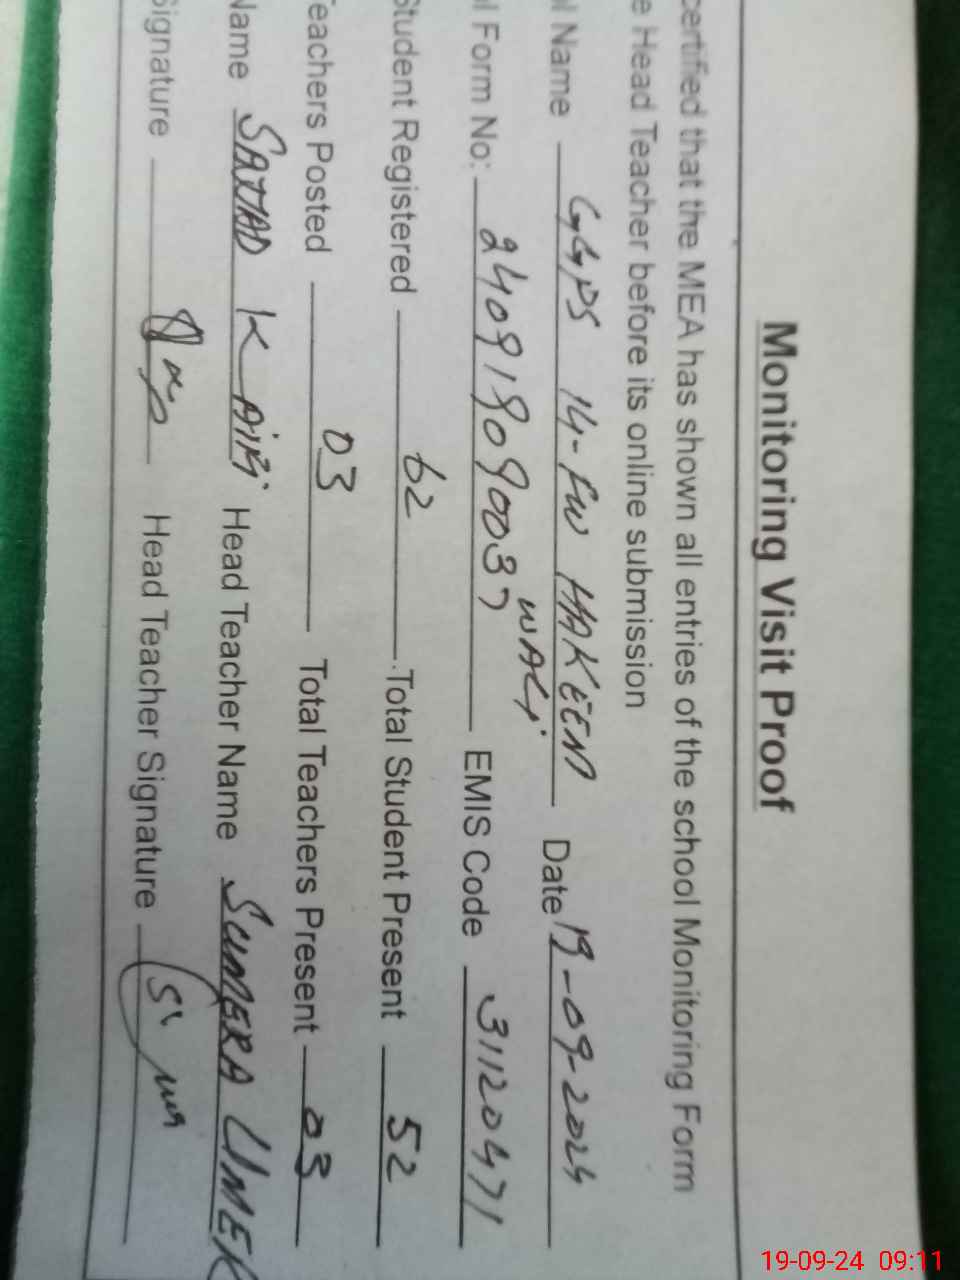 Monitoring Visit Proof
certified that the MEA has shown all entries of the school Monitoring Form
e Head Teacher before its online submission
l Name GGPS 14-FW HAKEEM WALI Date 19-09-2024
l Form No: 24091909003 EMIS Code 31120471
Student Registered 62 Total Student Present 52
Teachers Posted 03 Total Teachers Present 03
Name SAJJAD K Head Teacher Name SUMERA UMER
Signature Head Teacher Signature
19-09-24 09:11